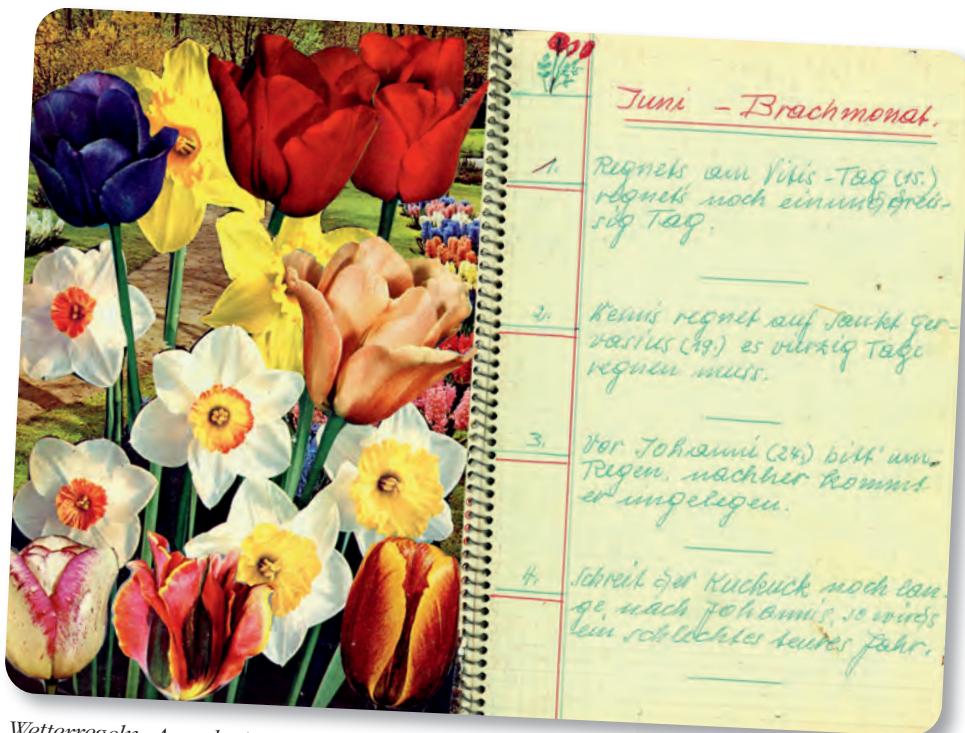 Juni - Brachmonat.
1. Regnets am Vitis-Tag (15.)
regnets noch einunddreis-
sig Tag.
2. Wenns regnet auf Sankt Ger-
vasius (19.) es vierzig Tage
regnen muss.
3. Vor Johanni (24.) bitt' um
Regen, nachher kommt
er ungelegen.
4. Schreit der Kuckuck noch lan-
ge nach Johannis, so wirds
ein schlechtes teures Jahr.
Wetterregeln